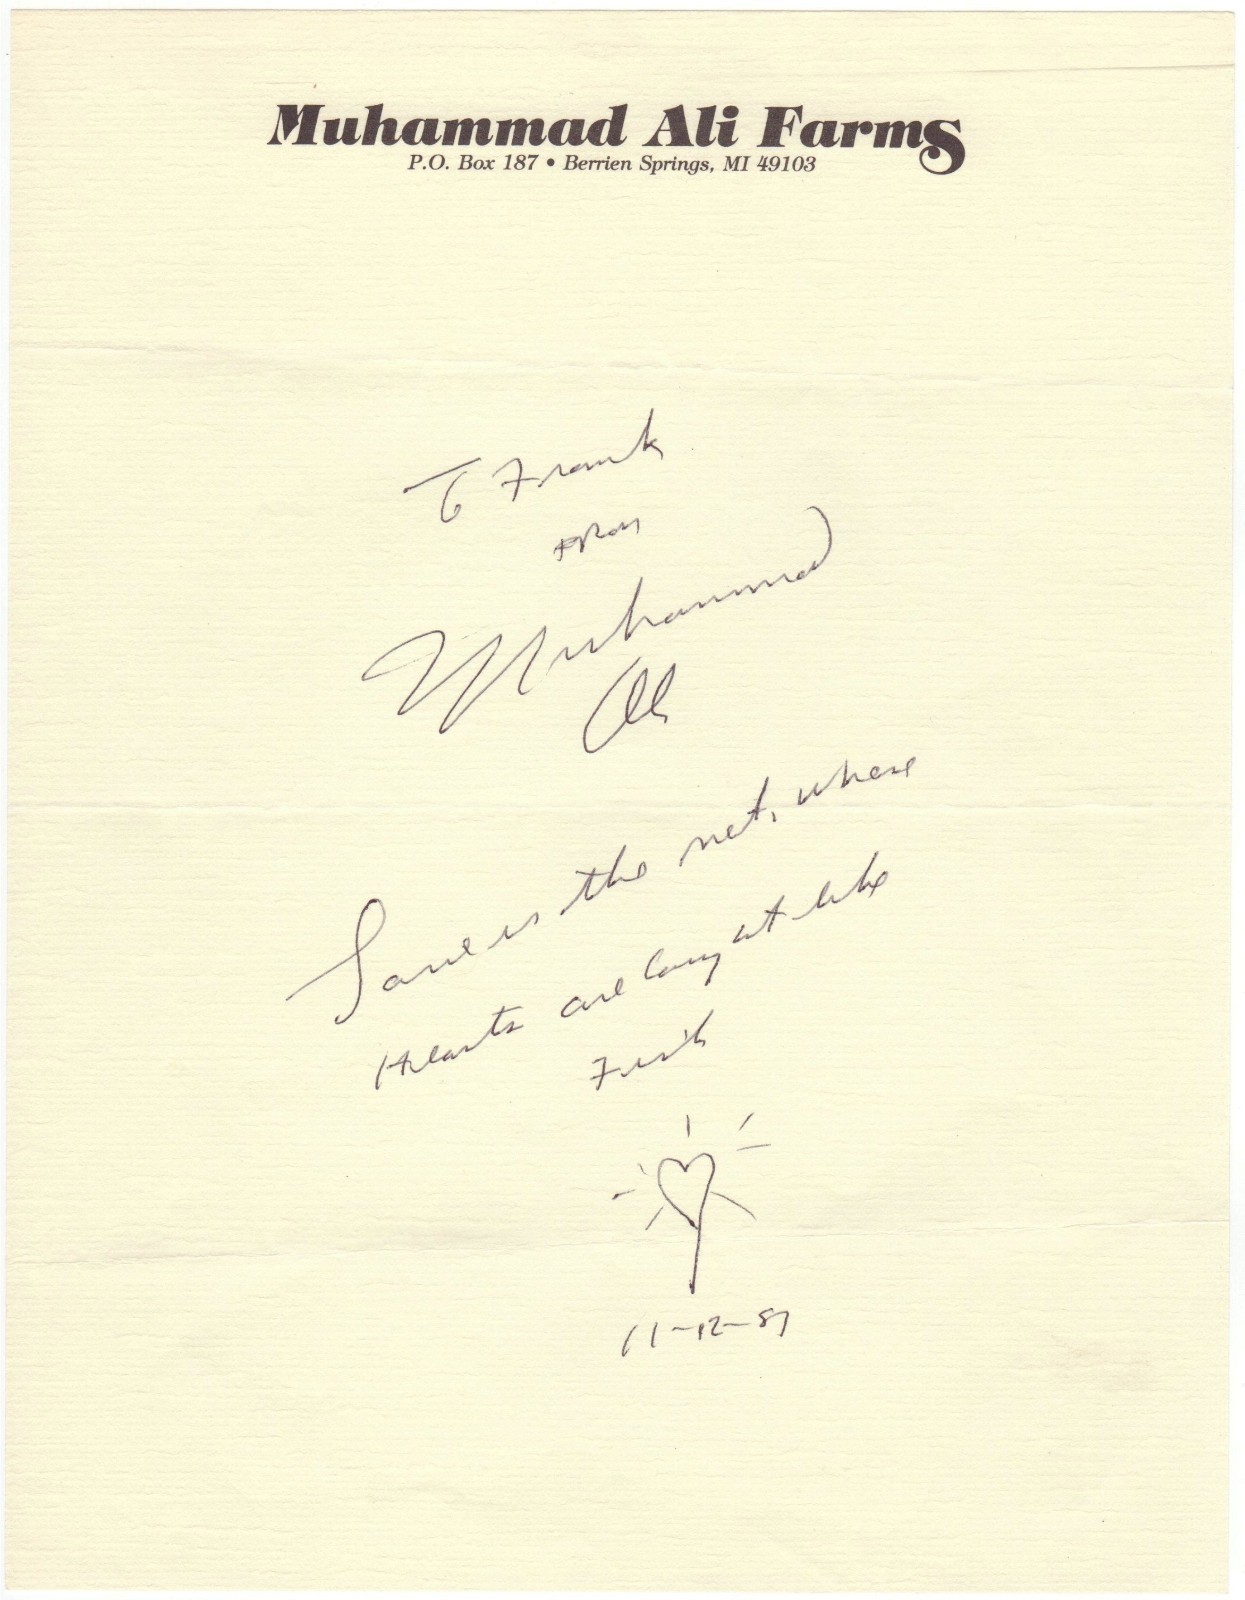 Muhammad Ali Farms
P.O. Box 187 • Berrien Springs, MI 49103
To Frank
from
Muhammad
Ali
Love is the net, where
Hearts are caught like
Fish
11-12-87